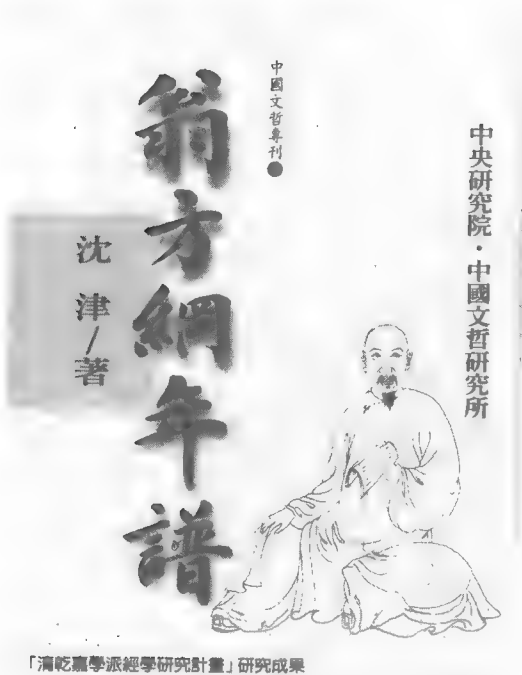 中央研究院・中國文哲研究所
中國文哲專刊
翁方綱年譜
沈津/著
「清乾嘉學派經學研究計畫」研究成果